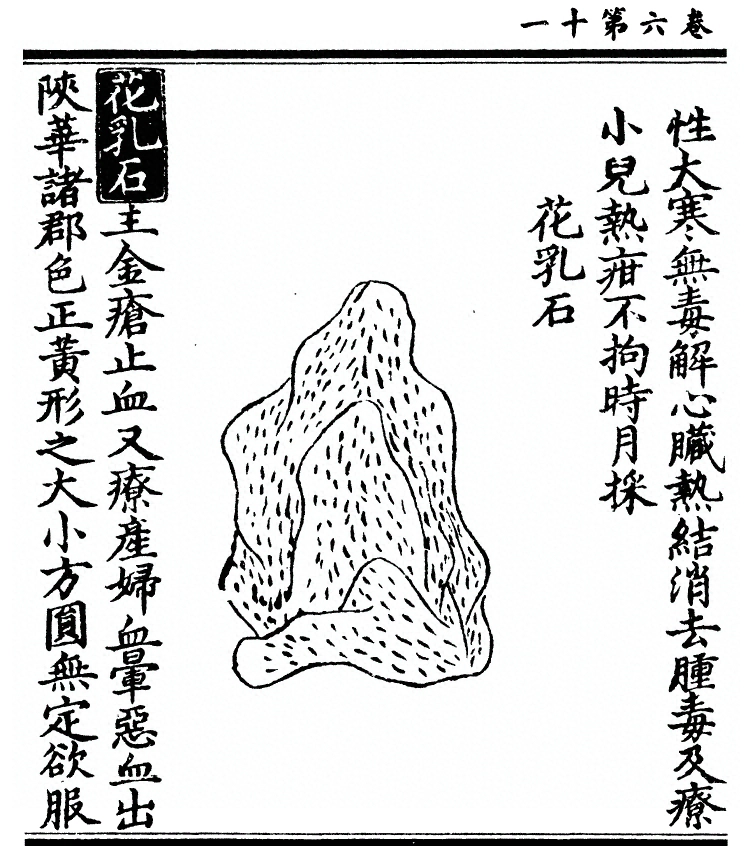 卷六第十一
性大寒無毒解心臟熱結消去腫毒及療
小兒熱疳不拘時月採
花乳石
花乳石主金瘡止血又療產婦血暈惡血出
陝華諸郡色正黃形之大小方圓無定欲服